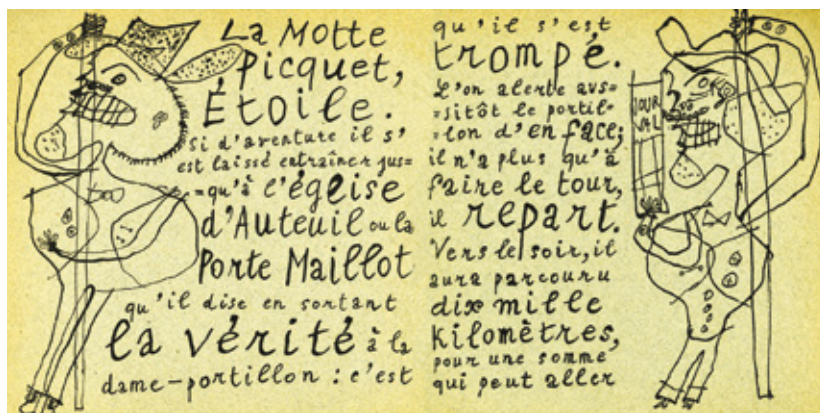 La Motte
Picquet,
Étoile.
Si d'aventure il s'
est laissé entraîner jus=
=qu'à l'église
d'Auteuil ou la
Porte Maillot
qu'il dise en sortant
la vérité à la
dame-portillon : c'est
qu'il s'est
trompé.
L'on alerte aus=
=sitôt le portil=
=lon d'en face;
il n'a plus qu'à
faire le tour,
il repart.
Vers le soir, il
aura parcouru
dix mille
kilomètres,
pour une somme
qui peut aller
JOUR
NAL